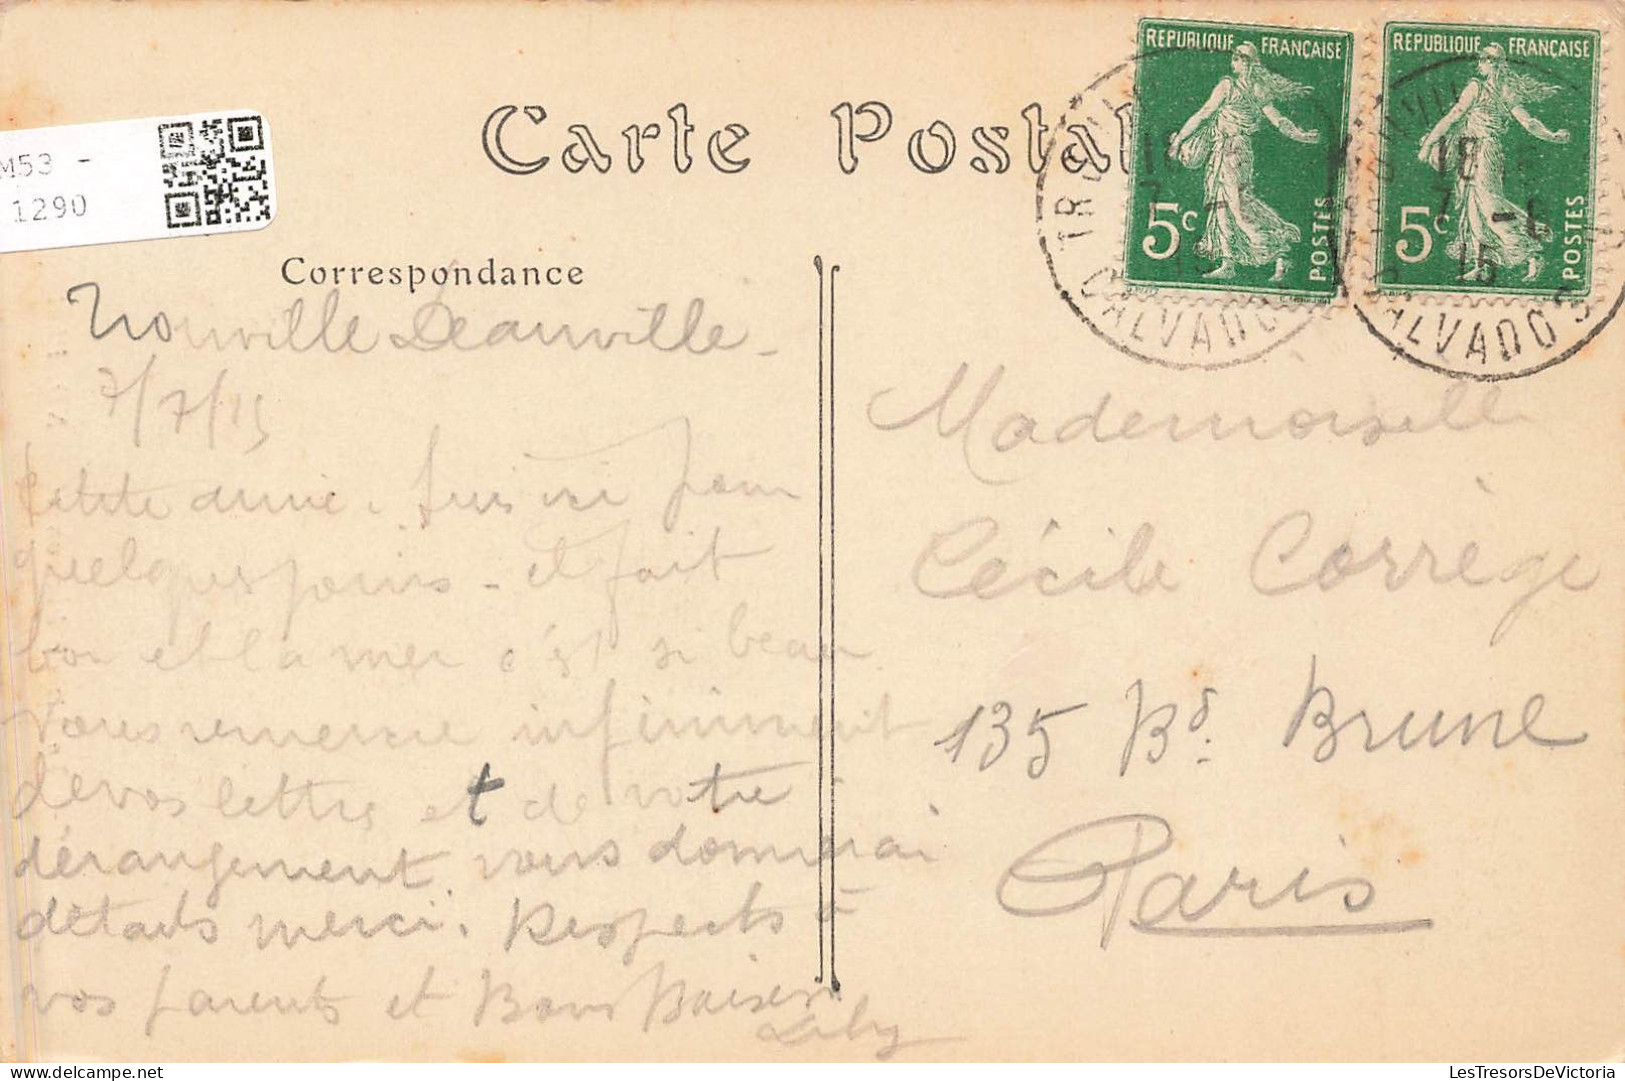 M53 -
1290
Carte Postal
Correspondance
REPUBLIQUE FRANÇAISE
5c
POSTES
REPUBLIQUE FRANÇAISE
5c
POSTES
CALVADOS
CALVADOS
18
7
15
Trouville Deauville -
7/7/15
Petite amie. Suis ici pour
quelques jours - il fait
bon et la mer c'est si beau
Vous remercie infiniment
de vos lettres et de votre
dérangement. vous donnerai
détails merci. Respects à
vos parents et Bons Baisers
Lily
Mademoiselle
Cécile Corrège
135 Bd. Brune
Paris
LesTresorsDeVictoria